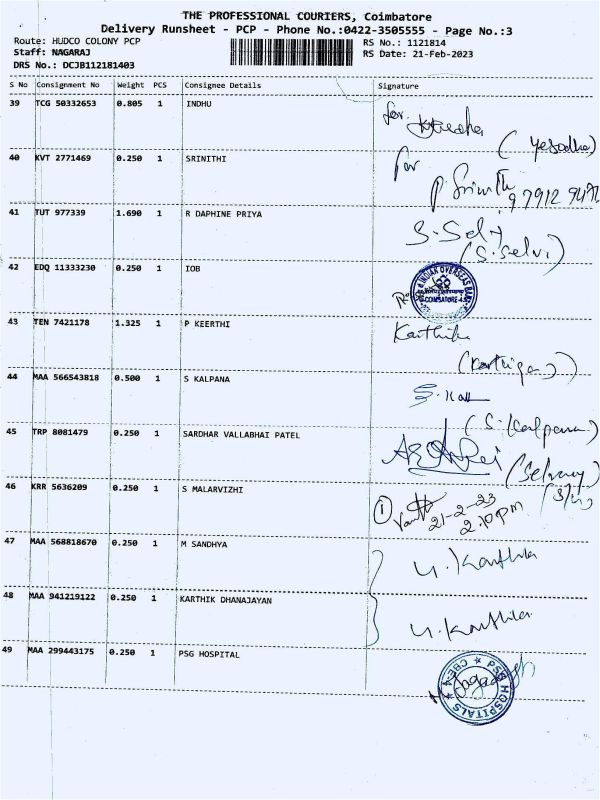 THE PROFESSIONAL COURIERS, Coimbatore
Delivery Runsheet - PCP - Phone No.:0422-3505555 - Page No.:3
Route: HUDCO COLONY PCP RS No.: 1121814
Staff: NAGARAJ RS Date: 21-Feb-2023
DRS No.: DCJB112181403
S No Consignment No Weight PCS Consignee Details Signature
39 TCG 50332653 0.805 1 INDHU for
(Yesodha)
40 KVT 2771469 0.250 1 SRINITHI for
P. Srinith
41 TUT 977339 1.690 1 R DAPHINE PRIYA S. Selvi
(S. Selvi)
42 EDQ 11333230 0.250 1 IOB INDIAN OVERSEAS BANK
COIMBATORE
43 TEN 7421178 1.325 1 P KEERTHI Karthika
(Karthiga)
44 MAA 566543818 0.500 1 S KALPANA S. Kal
(S. Kalpana)
45 TRP 8081479 0.250 1 SARDHAR VALLABHAI PATEL
46 KRR 5636209 0.250 1 S MALARVIZHI 1
21-2-23
2.10pm
47 MAA 568818670 0.250 1 M SANDHYA U. Karthika
48 MAA 941219122 0.250 1 KARTHIK DHANAJAYAN U. Karthika
49 MAA 299443175 0.250 1 PSG HOSPITAL PSG HOSPITALS
CBE-4